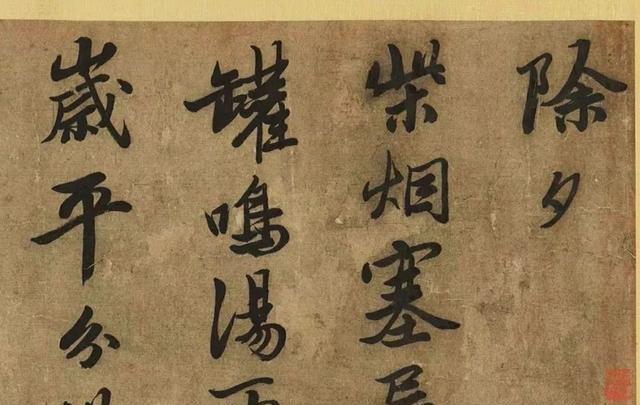 除夕
柴烟塞
罐鳴湯
歲平分